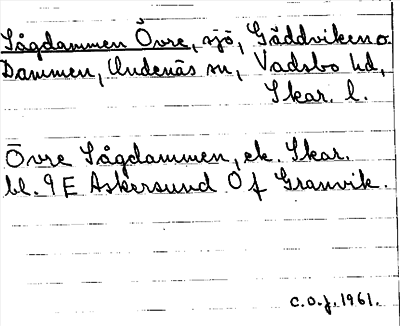 Sågdammen Övre, sjö, Gäddviken o.
Dammen, Undenäs sn, Vadsbo hd,
Skar. l.
Övre Sågdammen, ek. Skar.
bl. 9 E Askersund 0 f Granvik.
c.o.j. 1961.